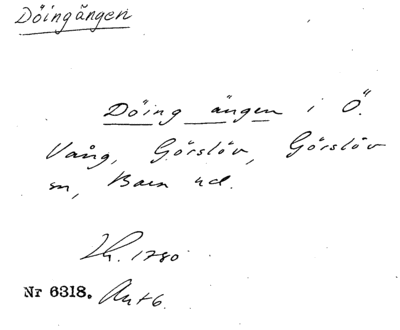 Döingängen
Döing ängen i Ö.
Vång, Görslöv, Görslöv
sn, Bara hd.
Lh. 1780
Nr 6318. Akt 6.